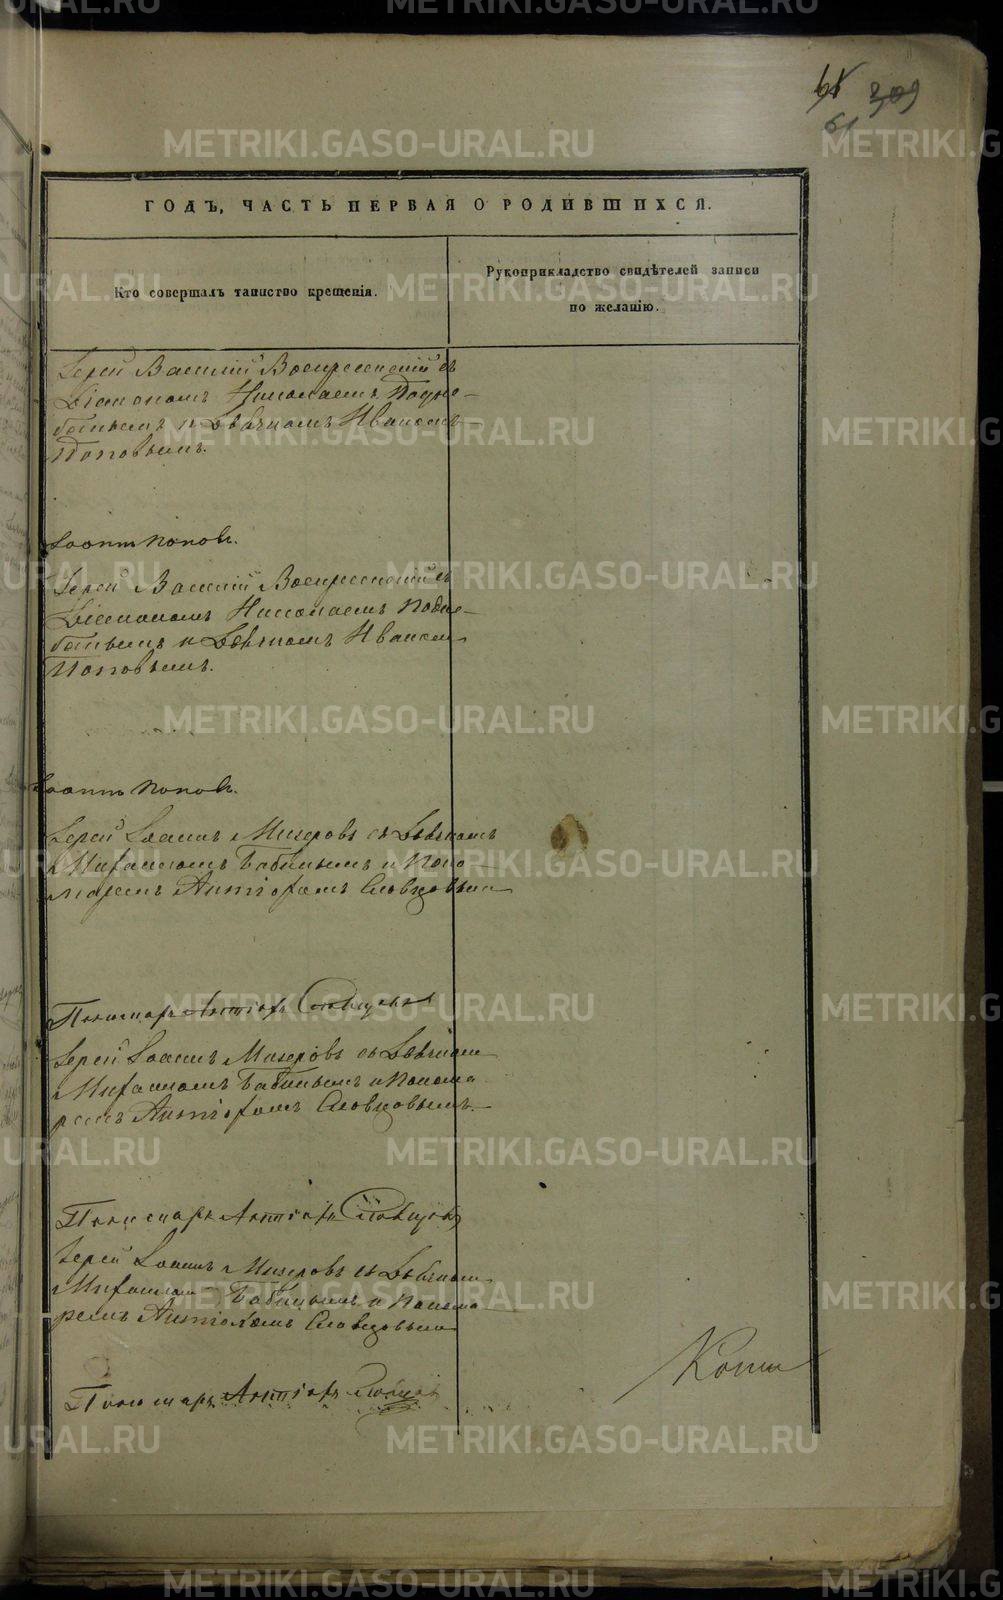 309
61
ГОДЪ, ЧАСТЬ ПЕРВАЯ О РОДИВШИХСЯ.
Кто совершалъ таинство крещенія.
Рукоприкладство свидѣтелей записи
по желанію.
Іерей Василій Воскресенскій съ
Діакономъ Николаемъ
и Дьячкомъ Иваномъ
Поповымъ.
Іоаннъ Поповъ.
Іерей Василій Воскресенскій съ
Діакономъ Николаемъ
и Дьячкомъ Иваномъ
Поповымъ.
Іоаннъ Поповъ.
Іерей Іоаннъ Мизеровъ съ Дьячкомъ
Михаиломъ Бабинымъ и Поно-
маремъ Антіохомъ Словцовымъ
Пономарь Антіохъ Словцовъ
Іерей Іоаннъ Мизеровъ съ Дьячкомъ
Михаиломъ Бабинымъ и Понома
ремъ Антіохомъ Словцовымъ.
Пономарь Антіохъ Словцовъ
Іерей Іоаннъ Мизеровъ съ Дьячкомъ
Михаиломъ Бабинымъ и Понома
ремъ Антіохомъ Словцовымъ
Пономарь Антіохъ Словцовъ
METRIKI.GASO-URAL.RU